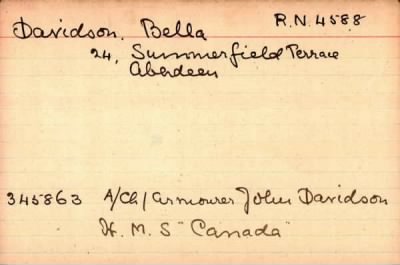 Davidson, Bella R.N. 4588
24, Summerfield Terrace
Aberdeen
345863 A/Ch/Armourer John Davidson
H.M.S "Canada"